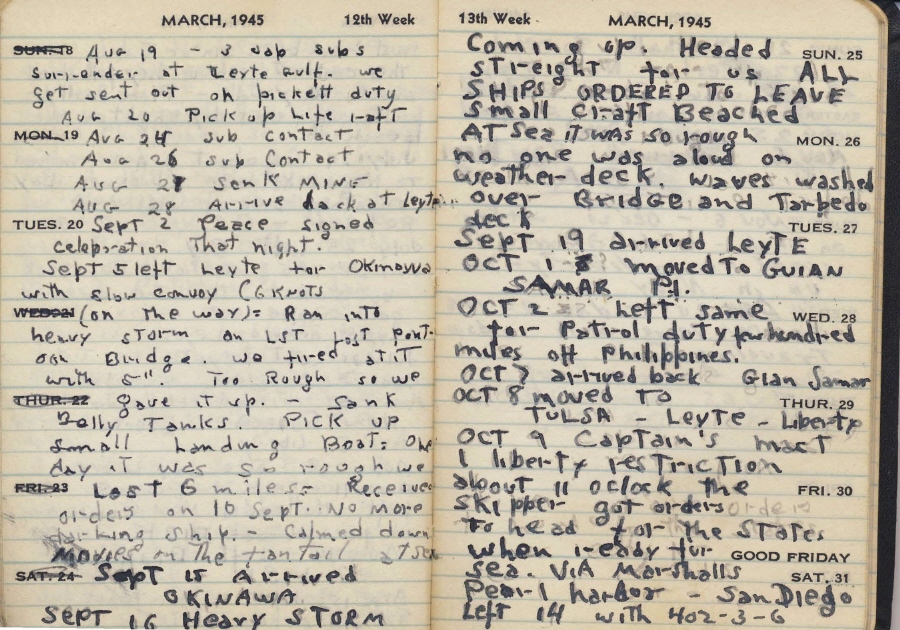 MARCH, 1945 12th Week
SUN. 18 Aug 19 - 3 Jap subs
surrender at Leyte gulf. we
get sent out on pickett duty
Aug 20 Pick up Life raft
MON. 19 Aug 24 sub contact
Aug 26 sub Contact
Aug 27 sank MINE
AUG 28 Arrive back at Leyte
TUES. 20 Sept 2 Peace signed
celebration That night.
Sept 5 left Leyte for Okinawa
with slow convoy (6 KNOTS
WED. 21 (on the way)= Ran into
heavy storm on LST lost Pont-
oon Bridge. we fired at iT
with 5". Too Rough so we
THUR. 22 gave it up. - Sank
Belly Tanks. PICK UP
small Landing Boat= One
day iT was so rough we
FRI. 23 Lost 6 miles= Received
orders on 10 Sept. No more
darking ship. - Calmed down
Movies on the fantail at sea
SAT. 24 Sept 15 Arrived
OKINAWA
SEPT 16 Heavy STORM
13th Week MARCH, 1945
Coming up. Headed SUN. 25
streight for us ALL
SHIPS ORDERED TO LEAVE
small craft Beached
AT Sea iT WAS so rough MON. 26
no one was aloud on
weather deck. waves washed
over Bridge and Tarpedo
deck TUES. 27
Sept 19 arrived LeyTE
OCT 1 moved To GUIAN
SAMAR P.I.
OCT 2 Left same WED. 28
for Patrol duty few hundred
miles off philippines.
OCT 7 arrived back Gian Samar
OCT 8 moved To THUR. 29
TULSA - Leyte - Liberty
OCT 9 Captain's mast
1 liberty resTriCTion
about 11 oclock the FRI. 30
skipper got orders
To head for the STates
when ready for GOOD FRIDAY
sea. VIA Marshalls SAT. 31
Pearl harbor - San Diego
Left 14 with 402-3-6